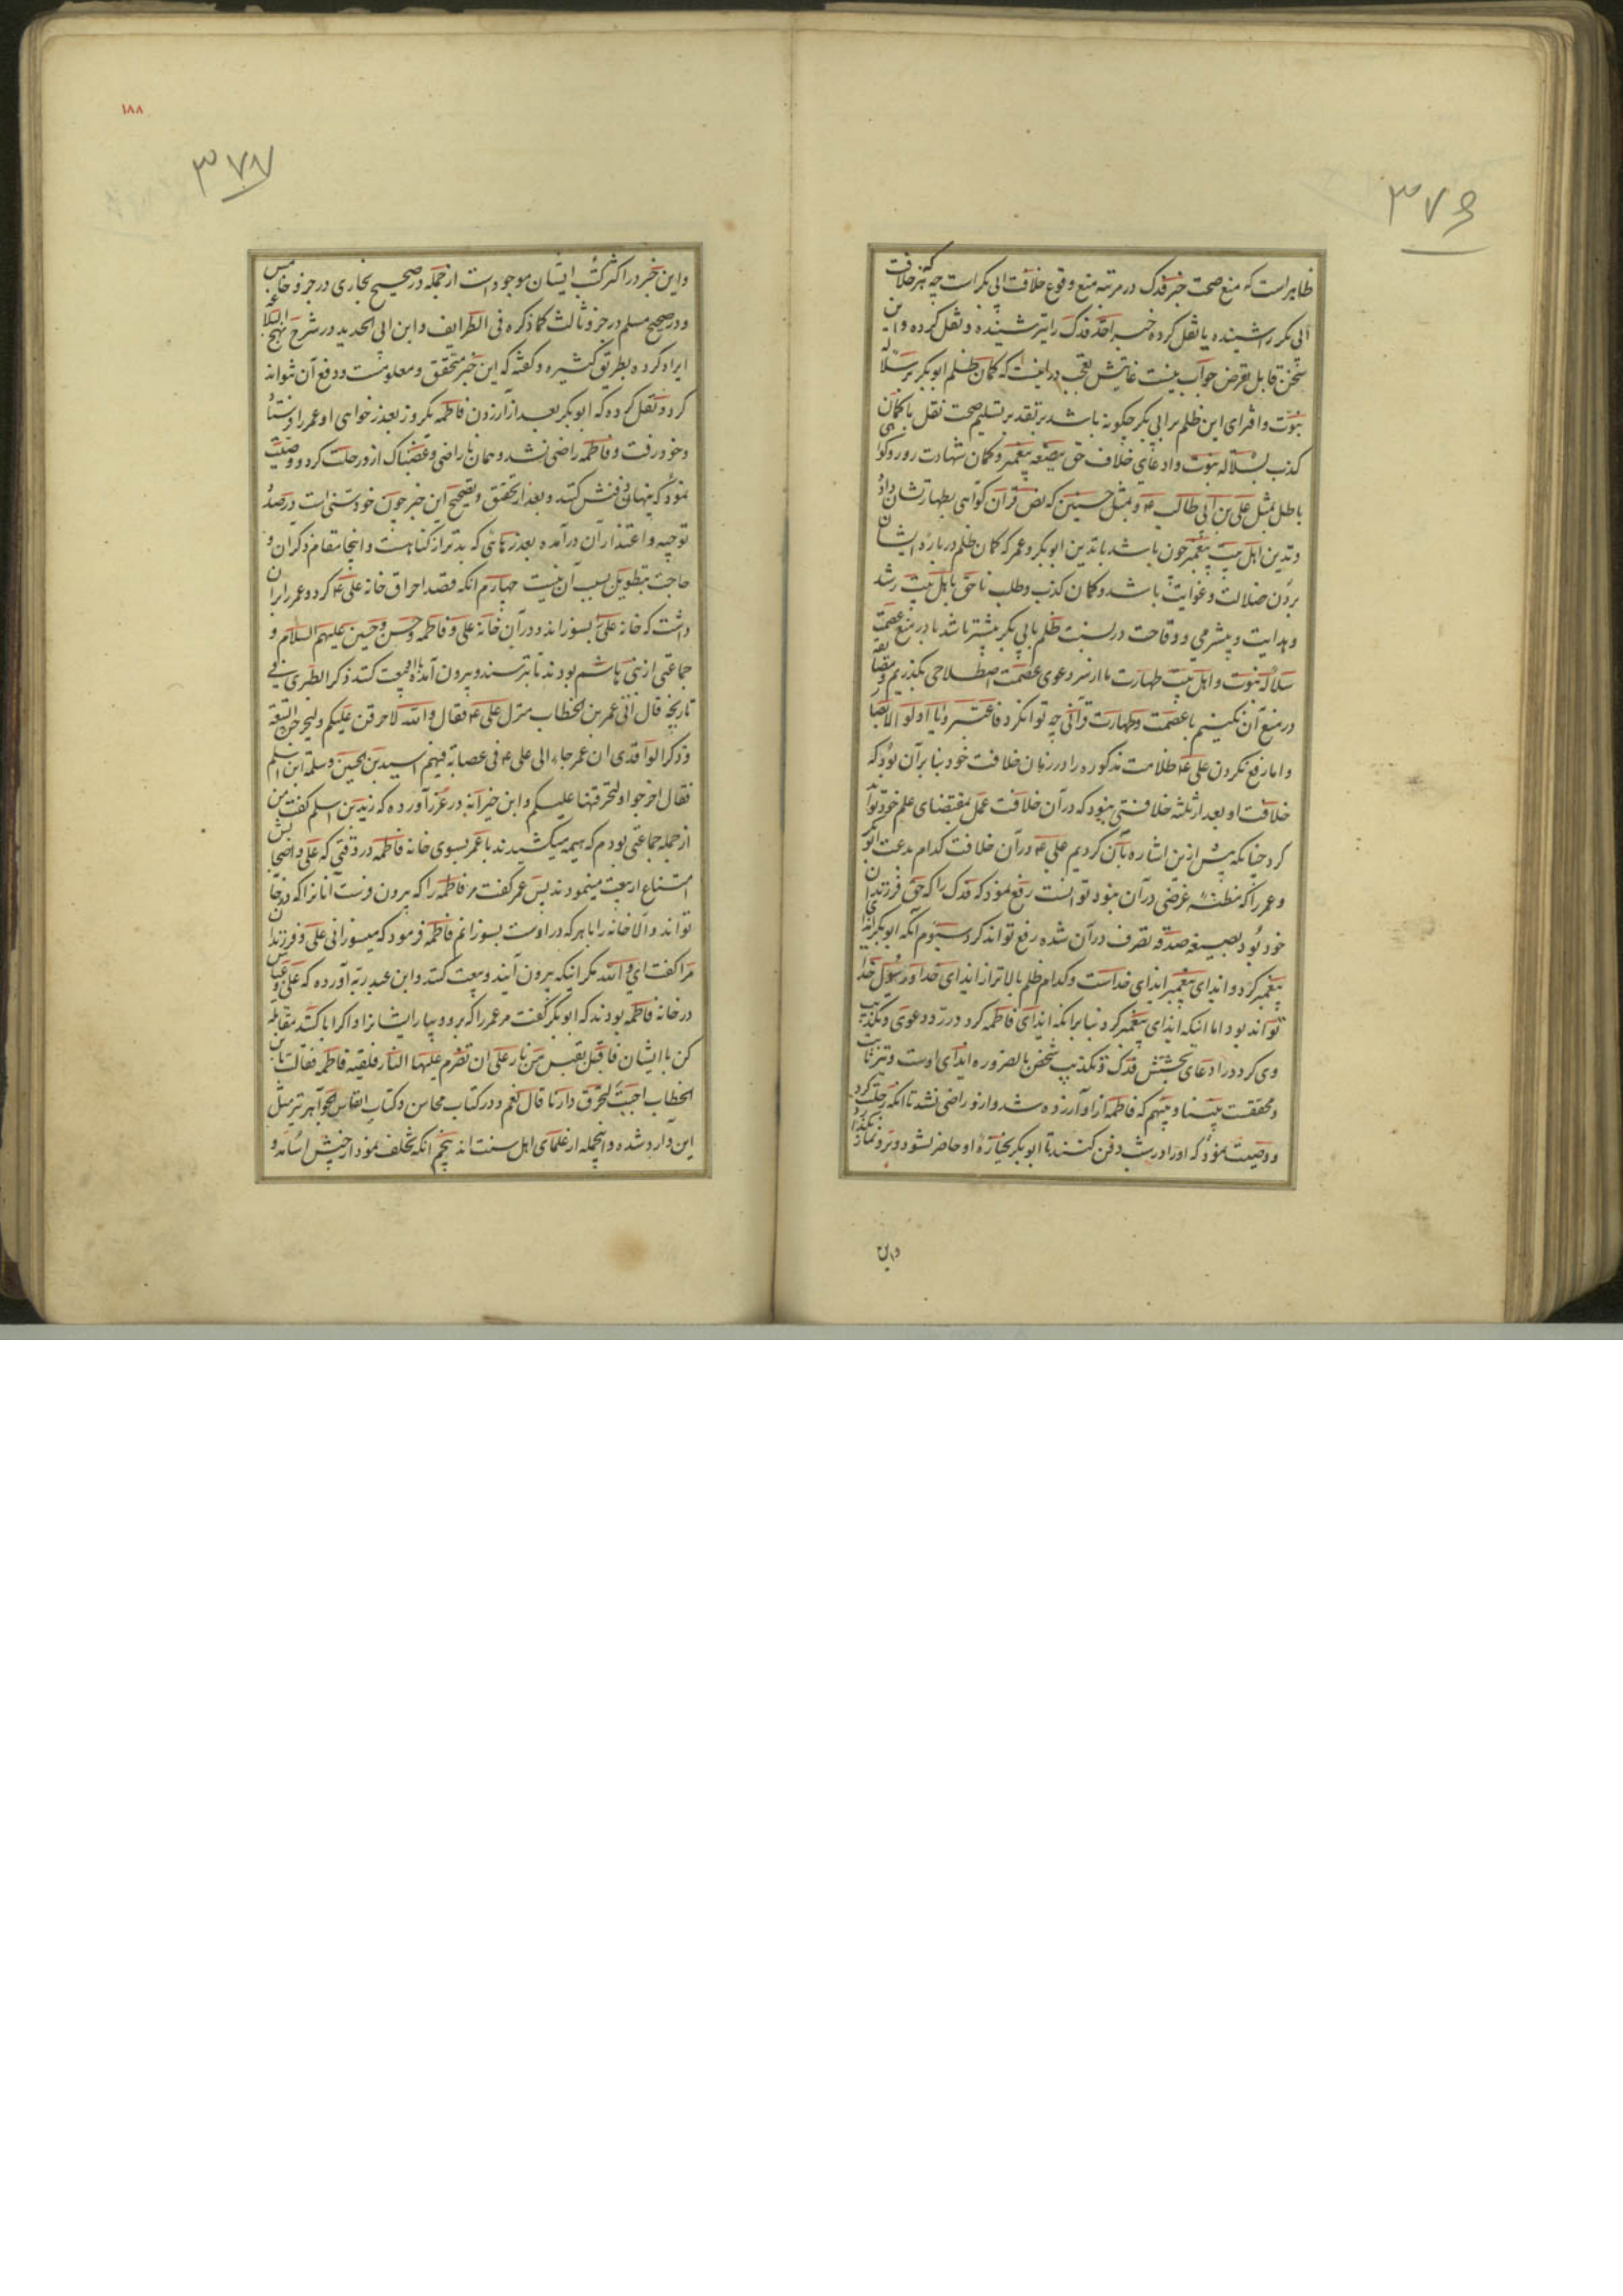 ۳۷۶
ظاهر است که منع صحت خبر فدک در مرتبه منع وقوع خلافت ابی بکر است چه هر که خبر خلافت
ابی بکر را شنیده یا نقل کرده خبر اخذ فدک را نیز شنیده و نقل کرده و این
سخن قابل تعرض جواب نیست غایتش تعجب در اینست که کمان ظلم ابو بکر بر سلاله
نبوت و افترای این ظلم بر ابی بکر چکونه باشد بر تقدیر تسلیم صحت نقل با کمان
کذب بسلاله نبوت و ادعای خلاف حق بضعه پیغمبر و کمان شهادت زور و کواهی
باطل بمثل علی بن ابی طالب ع و بمثل حسنین که نص قرآن کواهی بطهارتشان داده
و تدین اهل بیت پیغمبر چون باشد با تدین ابو بکر و عمر که کمان ظلم درباره ایشان
بردن ضلالت و غوایت باشد و کمان کذب و طلب ناحق باهل بیت رشد
و هدایت و بیشرمی و وقاحت در نسبت ظلم بابی بکر بیشتر باشد یا در منع عصمت
سلاله نبوت و اهل بیت طهارت ما از سر دعوی عصمت اصطلاحی بکذریم و مضایقه
در منع آن نکنیم با عصمت و طهارت قرآنی چه توان کرد فاعتبروا یا اولو الابصار
و اما رفع نکردن علی ع ظلامت مذکوره را در زمان خلافت خود بنا بر آن بود که
خلافت او بعد از ثلثه خلافتی نبود که در آن خلافت عمل بمقتضای علم خود تواند
کرد چنانکه پیش ازین اشاره بآن کردیم علی ع در آن خلافت کدام بدعت ابو بکر
و عمر را که مظنه غرضی در آن نبود توانست رفع نمود که فدک را که حق فرزندان
خود بود بصیغه صدقه تصرف در آن شده رفع تواند کرد سیوم آنکه ابو بکر ایذای
پیغمبر کرد و ایذای پیغمبر ایذای خداست و کدام ظلم بالاتر از ایذای خدا و رسول خدا
تواند بود اما اینکه ایذای پیغمبر کرد بنا بر انکه ایذای فاطمه کرد در رد دعوی و تکذیب
وی کرد در ادعای بخشش فدک و تکذیب شخص بالضروره ایذای اوست و نیز ثابت
و محققست و متهم که فاطمه از او آزرده شد و ازو راضی نشد تا انکه رحلت کرد
و وصیت نمود که او را در شب دفن کنند تا ابو بکر بجنازه او حاضر نشود و برو نماز نکذارد
واین
۱۸۸
۳۷۷
واین خبر در اکثر کتب ایشان موجود است از جمله در صحیح بخاری در جزو خامس
و در صحیح مسلم در جزو ثالث کما ذکره فی الطرایف و ابن ابی الحدید در شرح نهج البلاغه
ایراد کرده بطریق کثیره و کفته که این خبر متحقق و معلومست و دفع آن نتواند
کرد و نقل کرده که ابو بکر بعد از آزردن فاطمه یکروز بعذرخواهی او عمر را فرستاد
و خود رفت و فاطمه راضی نشد و همان ناراضی و غضبناک ازو رحلت کرد و وصیت
نمود که پنهان دفنش کنند و بعد از تحقیق و تصحیح این خبر چون خود سنی است درصدد
توجیه و اعتذار آن درآمده بعذرهائی که بدتر از کناهست و اینجا مقام ذکر آن و
حاجت بتطویل بسبب آن نیست چهارم انکه قصد احراق خانه علی ع کرد و عمر را بر ان
داشت که خانه علی بسوزاند و در آن خانه علی و فاطمه و حسن و حسین علیهم السلام و
جماعتی از بنی هاشم بودند تا بترسند و بیرون آمده بیعت کنند ذکر الطبری فی
تاریخه قال اتی عمر بن الخطاب منزل علی ع فقال و الله لاحرقن علیکم ولیخرجن للبیعة
و ذکر الواقدی ان عمر جاء الی علی ع فی عصابة فیهم اسید بن الحصین و سلمة ابن اسلم
فقال اخرجوا او لنحرقنها علیکم و ابن خیرانه در غرر آورده که زید بن اسلم کفت من
از جمله جماعتی بودم که هیمه میکشیدند با عمر بسوی خانه فاطمه در وقتی که علی و اصحابش
امتناع از بیعت مینمودند پس عمر کفت مر فاطمه را که بیرون فرست آنانرا که در خانه
تواند و الا خانه را با هر که در اوست بسوزانم فاطمه فرمود که میسوزانی علی و فرزندان
مرا کفت ای و الله مکر اینکه بیرون آیند و بیعت کنند و ابن عبد ربه آورده که علی و عباس
در خانه فاطمه بودند که ابو بکر کفت مر عمر را که برو و بیار ایشانرا و اکر ابا کنند مقاتله
کن با ایشان فاقبل بقبس من نار علی ان تضرم علیها النار فلقیته فاطمه فقالت یا بن
الخطاب اجئت لتحرق دارنا قال نعم و در کتاب محاسن و کتاب انفاس الجواهر نیز مثل
این وارد شده و اینجمله از علمای اهل سنت اند پنجم انکه تخلف نمود از جیش اسامه و